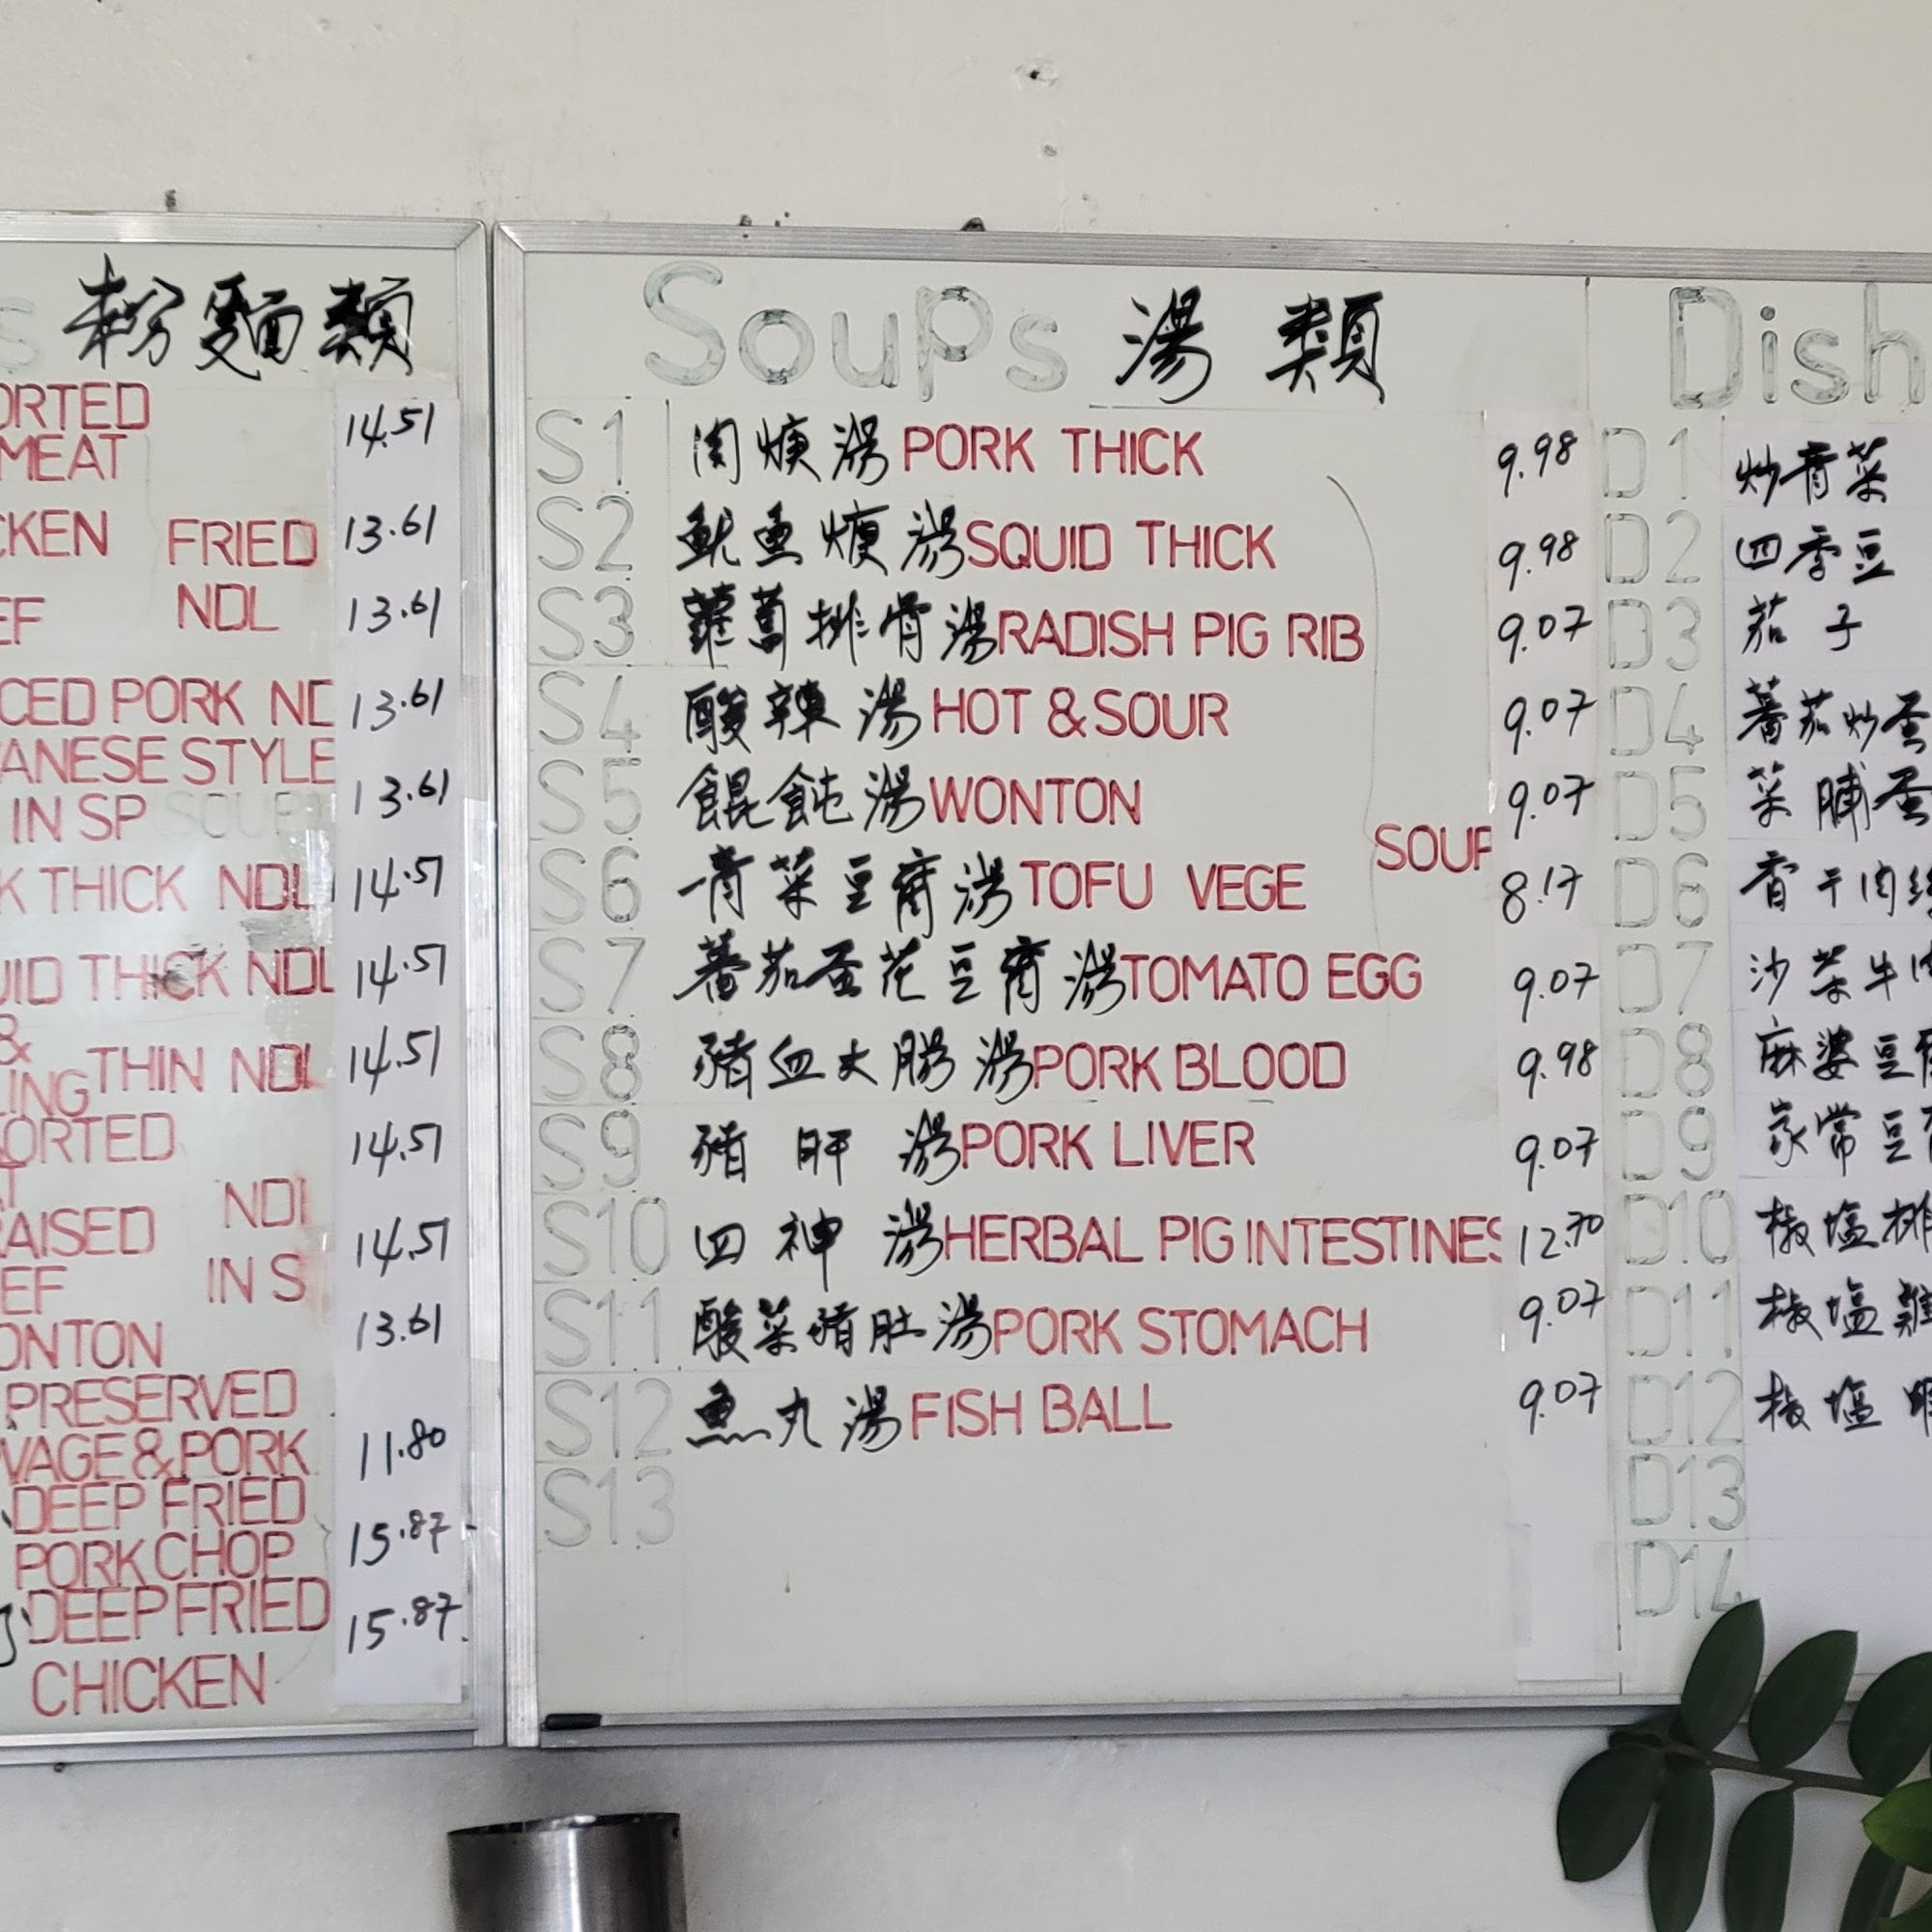 粉麵類
ORTED
MEAT 14.51
CKEN FRIED 13.61
EF NDL 13.61
CED PORK ND 13.61
ANESE STYLE
IN SP SOUP 13.61
K THICK NDL 14.51
UID THICK NDL 14.51
&
LING THIN NDL 14.51
SORTED 14.51
T NDL
RAISED 14.51
EF IN S
ONTON 13.61
PRESERVED
VAGE & PORK 11.80
DEEP FRIED
PORK CHOP 15.87
DEEP FRIED 15.87
CHICKEN
Soups 湯類
S1 肉焿湯 PORK THICK 9.98
S2 魷魚焿湯 SQUID THICK 9.98
S3 蘿蔔排骨湯 RADISH PIG RIB 9.07
S4 酸辣湯 HOT & SOUR 9.07
S5 餛飩湯 WONTON 9.07
SOUP
S6 青菜豆腐湯 TOFU VEGE 8.17
S7 蕃茄蛋花豆腐湯 TOMATO EGG 9.07
S8 豬血大腸湯 PORK BLOOD 9.98
S9 豬肝湯 PORK LIVER 9.07
S10 四神湯 HERBAL PIG INTESTINES 12.70
S11 酸菜豬肚湯 PORK STOMACH 9.07
S12 魚丸湯 FISH BALL 9.07
S13
Dish
D1 炒青菜
D2 四季豆
D3 茄子
D4 蕃茄炒蛋
D5 菜脯蛋
D6 香干肉絲
D7 沙茶牛肉
D8 麻婆豆腐
D9 家常豆腐
D10 椒塩排
D11 椒塩雞
D12 椒塩
D13
D14